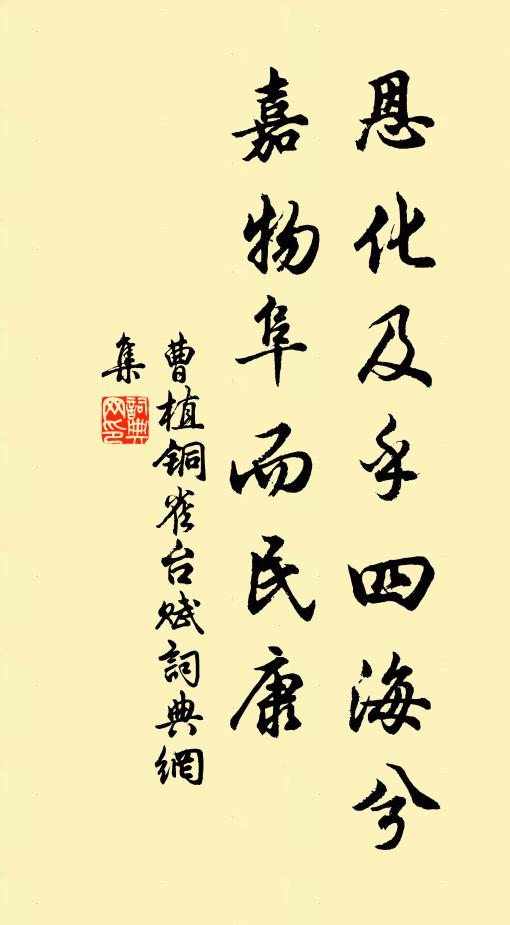 恩化及乎四海兮
嘉物阜而民康
曹植銅雀台赋詞典網
集
詞典
网印